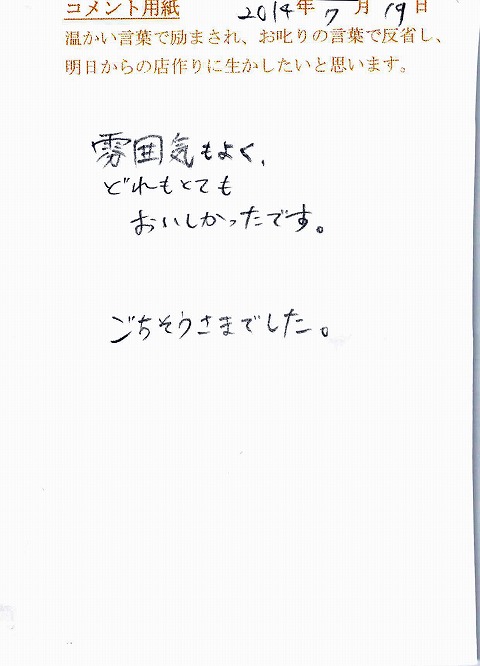 コメント用紙 2014年 7月 19日
温かい言葉で励まされ、お叱りの言葉で反省し、
明日からの店作りに生かしたいと思います。
雰囲気もよく、
どれもとても
おいしかったです。
ごちそうさまでした。